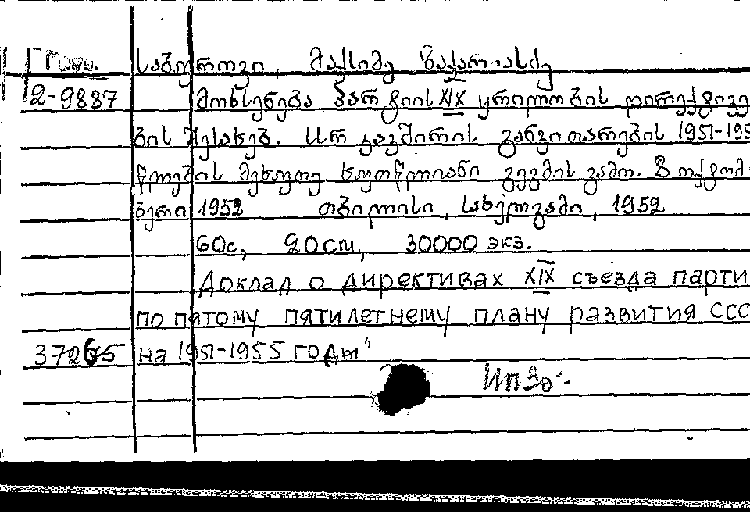 საბუროვი, მაქსიმე ზაქარიასძე
2-9837 მოხსენება პარტიის XIX ყრილობის დირექტივე
ბის შესახებ. სსრ კავშირის განვითარების 1951-195
წლების მეხუთე ხუთწლიანი გეგმის გამო. 8 ოქტომ-
ბერი 1952 თბილისი, სახელგამი, 1952
60с, 20см, 30000 экз.
Доклад о директивах XIX съезда парти
по пятому пятилетнему плану развития ССС
37265 на 1951-1955 годы"